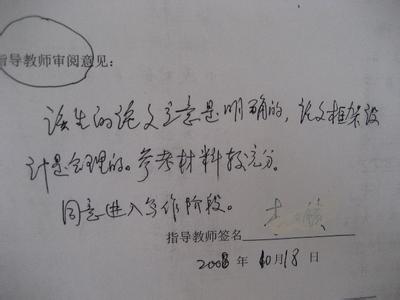 指导教师审阅意见：
该生的论文立意是明确的，论文框架设
计是合理的。参考材料较充分。
同意进入写作阶段。
指导教师签名
2008 年 10月18 日